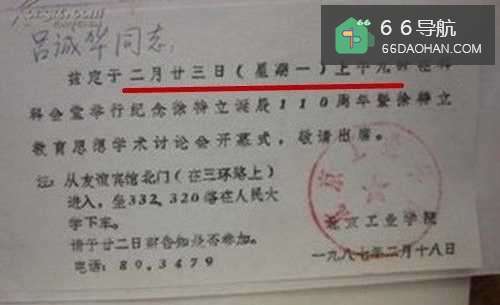 66导航
66DAOHAN.COM
吕诚华同志：
兹定于二月廿三日（星期一）上午九时在科
科会堂举行纪念徐特立诞辰110周年暨徐特立
教育思想学术讨论会开幕式，敬请出席。
注：从友谊宾馆北门（在三环路上）
进入，坐332、320路在人民大
学下车。
请于廿二日前告知是否参加。
电话：89.3479
北京工业学院
一九八七年二月十八日